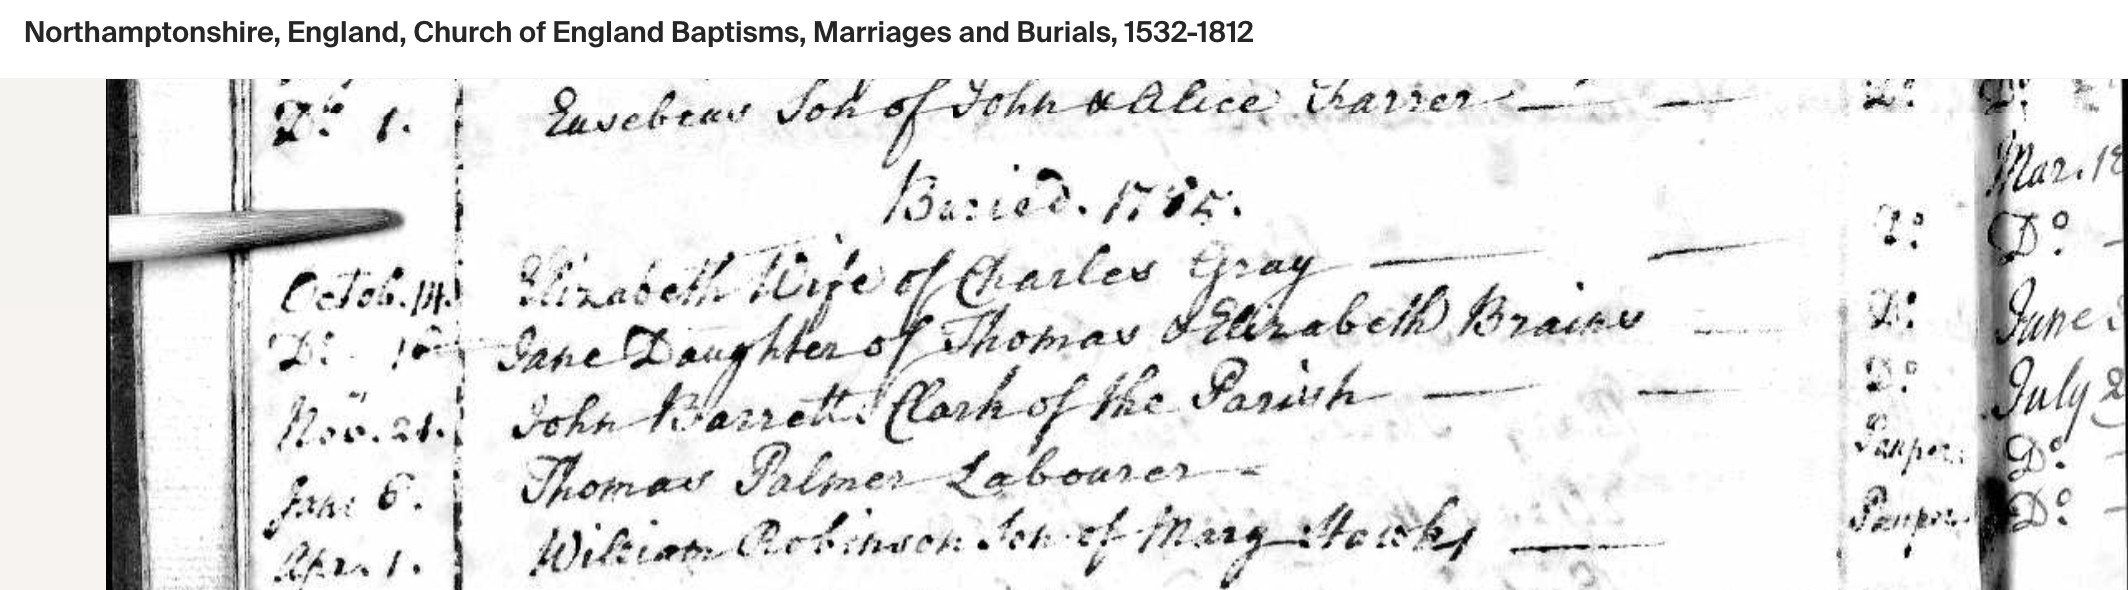 Northamptonshire, England, Church of England Baptisms, Marriages and Burials, 1532-1812
Do. 1. Eusebius Son of John & Alice Farrer Do. Do.
Buried. 1785.
Mar. 18
Octob. 14. Elizabeth Wife of Charles Gray Do. Do.
Do. Jane Daughter of Thomas & Elizabeth Brains Do. June
Nov. 21. John Barrett Clark of the Parish Do. July 2
Jan: 6. Thomas Palmer Labourer Pauper. Do.
Apr. 1. William Robinson Son of Mary Pauper. Do.